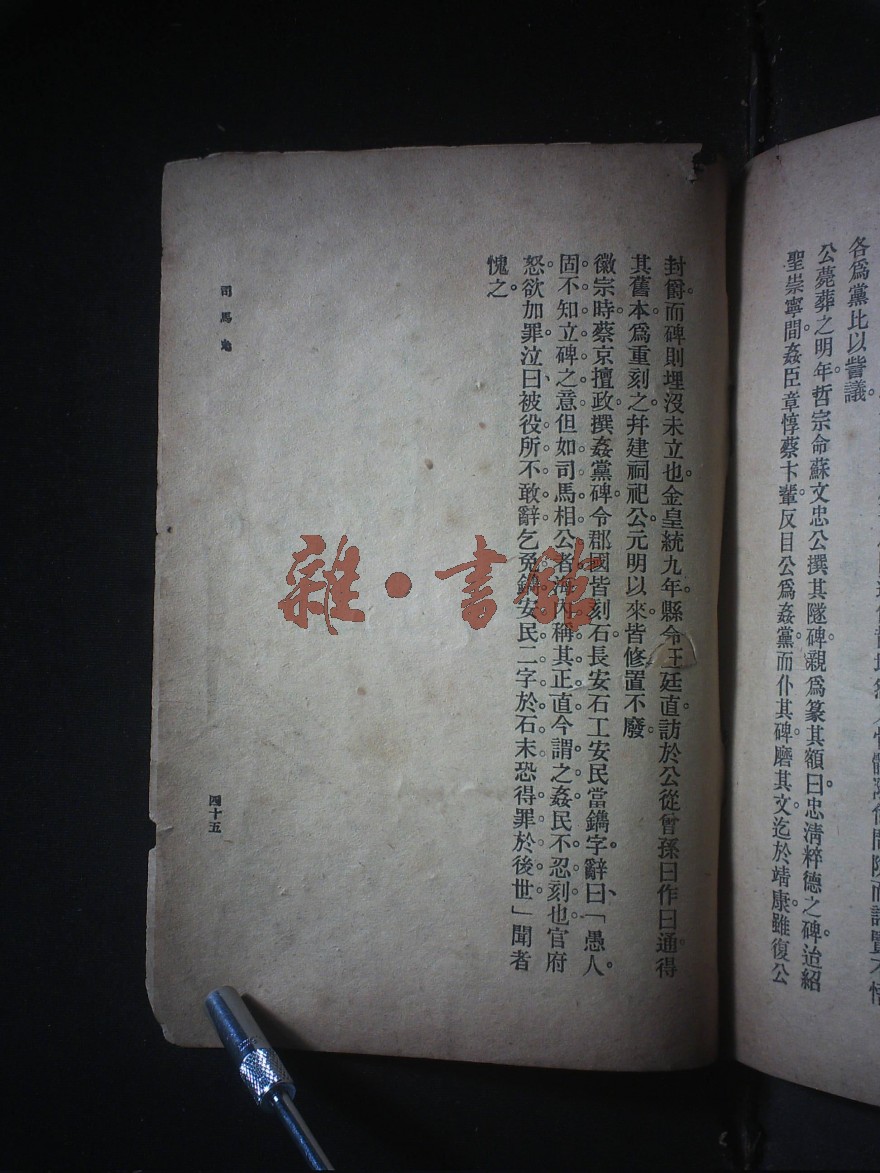 各爲黨比以訾議。
公薨葬之明年。哲宗命蘇文忠公撰其隧碑。親爲篆其額曰忠淸粹德之碑。迨紹
聖崇寧間。姦臣章惇蔡卞輩。反目公爲姦黨而仆其碑。磨其文。迄於靖康。雖復公
封爵。而碑則埋沒未立也。金皇統九年。縣令王廷直訪於公從曾孫曰作曰通。得
其舊本。爲重刻之。幷建祠祀公。元明以來。皆修置不廢。
徽宗時。蔡京擅政。撰姦黨碑。令郡國皆刻石。長安石工安民當鐫字。辭曰、「愚人。
固不知立碑之意。但如司馬相公者。海內稱其正直。今謂之姦。民不忍刻也。官府
怒。欲加罪。泣曰、被役所不敢辭。乞免鐫安民二字於石末。恐得罪於後世。」聞者
愧之。
司馬光
四十五
雜·書館